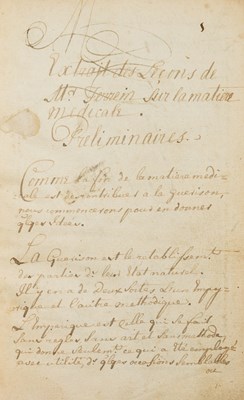 Extrait des Leçons de
Mr. sur la matiere
medicale.
Preliminaires.
Comme la fin de la matiere medi-
cale est de contribuer a la Guerison,
nous commencerons pour en donner
qlqes Idées.
La Guerison est le retablissement
des parties de leur Etat naturel.
Il y en a de Deux Sortes L'un Empy-
rique et L'autre methodique.
L'Empirique est Celle qui se fait
Sans regles Sans art et Sans methode
qui donne Seulement ce qui a Eté employé
avec utilité, de qlqes occasions Semblables